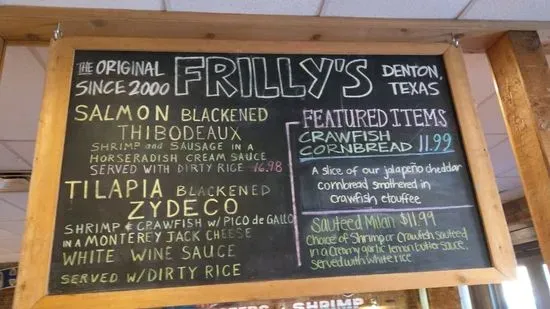 THE ORIGINAL
SINCE 2000
FRILLY'S
DENTON,
TEXAS
SALMON BLACKENED
THIBODEAUX
SHRIMP AND SAUSAGE IN A
HORSERADISH CREAM SAUCE
SERVED WITH DIRTY RICE 16.98
TILAPIA BLACKENED
ZYDECO
SHRIMP & CRAWFISH W/PICO de GALLO
IN A MONTEREY JACK CHEESE
WHITE WINE SAUCE
SERVED W/DIRTY RICE
FEATURED ITEMS
CRAWFISH
CORNBREAD 11.99
A slice of our jalapeño cheddar
cornbread smothered in
crawfish etouffee
Sauteed Milan $11.99
Choice of Shrimp or Crawfish sauteed
in a creamy garlic lemon butter sauce.
served with white rice
SHRIMP